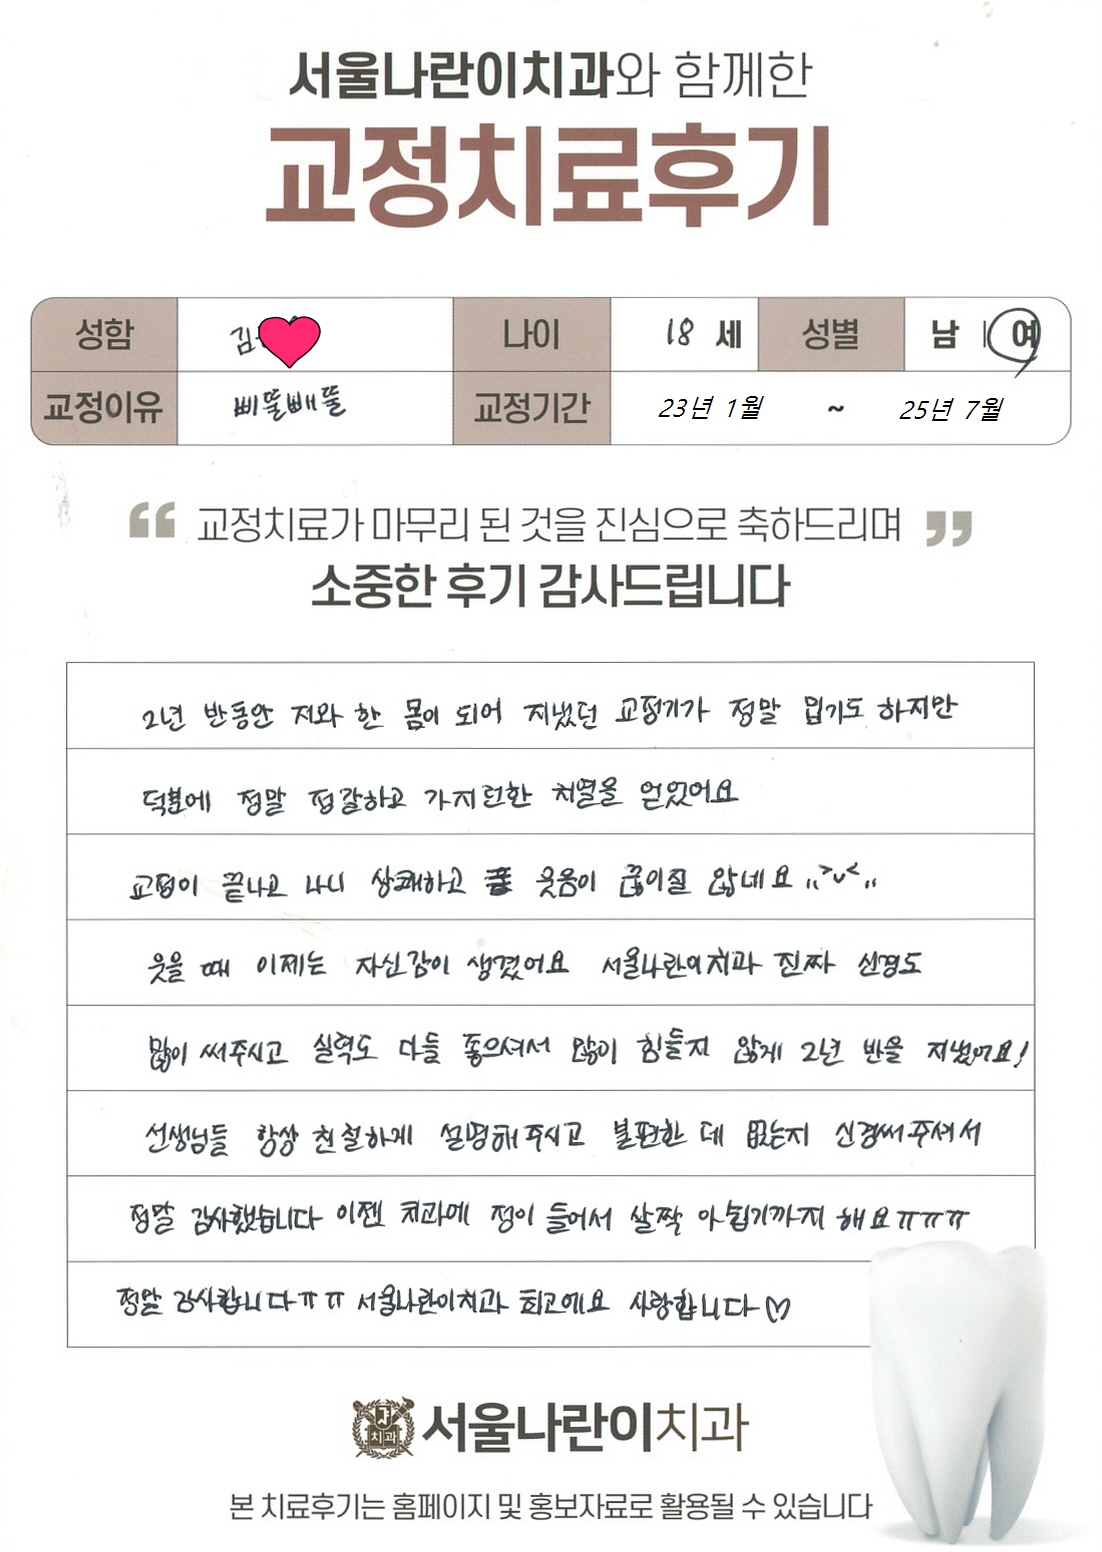 서울나란이치과와 함께한
교정치료후기
성함 김 나이 18 세 성별 남 | 여
교정이유 삐뚤빼뚤 교정기간 23년 1월 ~ 25년 7월
“ 교정치료가 마무리 된 것을 진심으로 축하드리며 ”
소중한 후기 감사드립니다
2년 반동안 저와 한 몸이 되어 지냈던 교정기가 정말 밉기도 하지만
덕분에 정말 정갈하고 가지런한 치열을 얻었어요
교정이 끝나고 나니 상쾌하고 웃음이 끊이질 않네요 ,,>v<,,
웃을 때 이제는 자신감이 생겼어요 서울나란이치과 진짜 신경도
많이 써주시고 실력도 다들 좋으셔서 많이 힘들지 않게 2년 반을 지냈어요!
선생님들 항상 친절하게 설명해주시고 불편한 데 없는지 신경써주셔서
정말 감사했습니다 이젠 치과에 정이 들어서 살짝 아쉽기까지 해요ㅠㅠㅠ
정말 감사합니다ㅠㅠ 서울나란이치과 최고예요 사랑합니다♡
치과
서울나란이치과
본 치료후기는 홈페이지 및 홍보자료로 활용될 수 있습니다